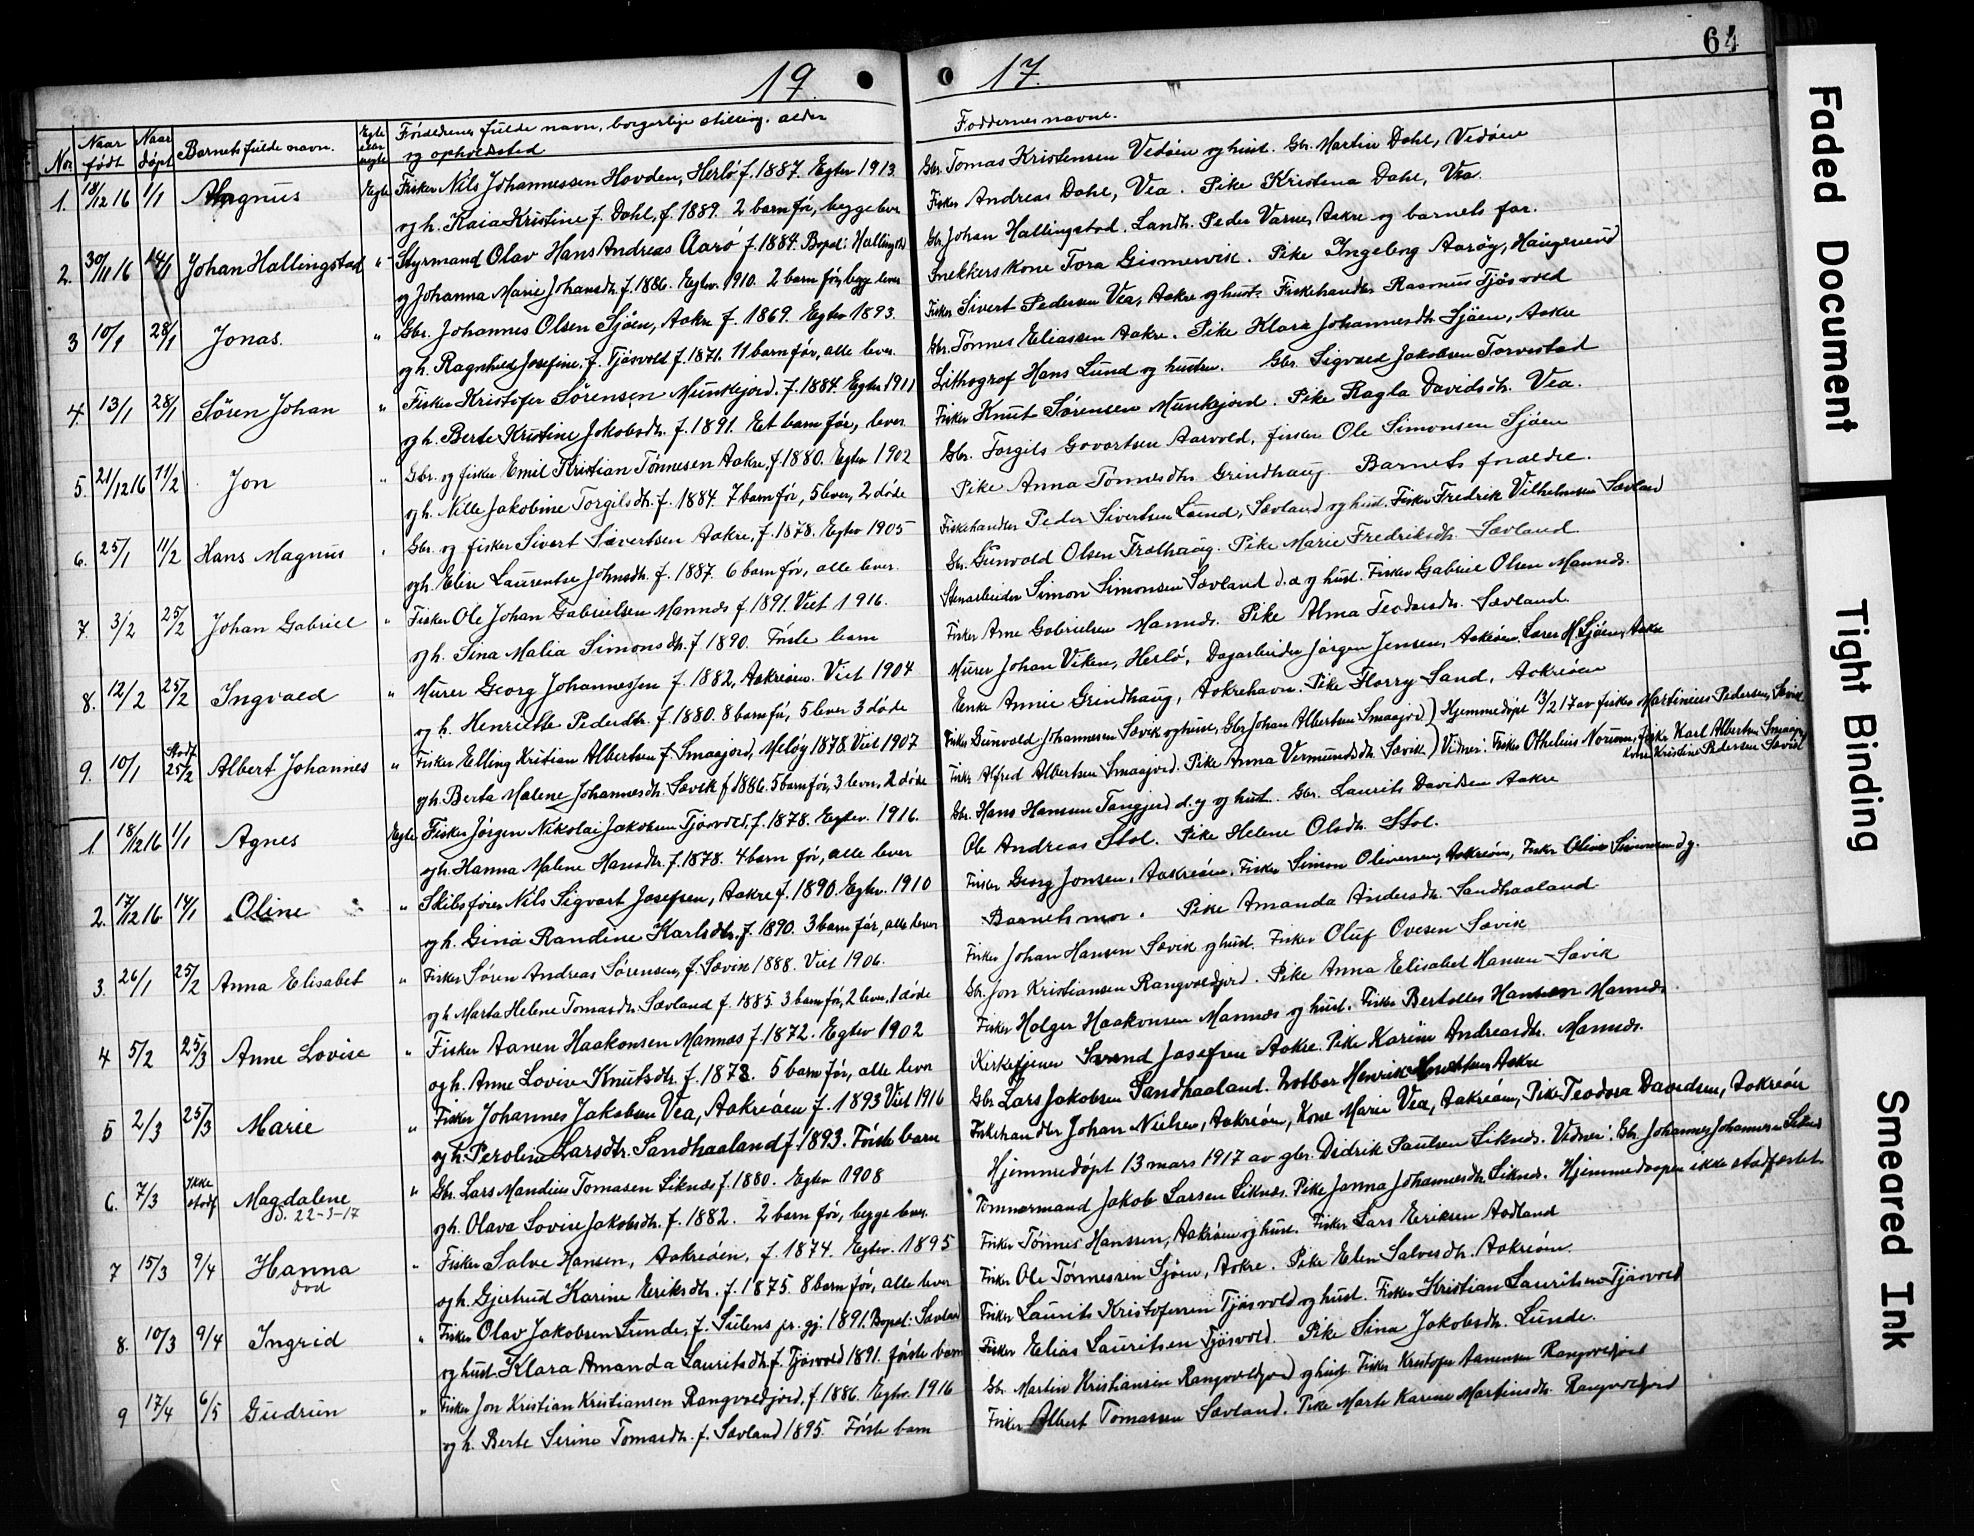 64
19 17.
No. Naar født Naar døpt Barnets fulde navn. Egte eller uegte Forældrenes fulde navn, borgerlige stilling, alder og opholdssted Faddernes navne.
1. 18/12 16 1/1 Magnus Egte Fisker Nils Johannessen Hovden, Herlø f. 1887. Egtev 1913. Gbr. Tomas Kristensen Vedøen og hust. Gbr. Martin Dahl, Vedøen
og h. Kaia Kristine f. Dahl, f. 1889. 2 barn før, begge lever Fisker Andreas Dahl, Vea. Pike Kristina Dahl, Vea.
2. 30/11 16 14/1 Johan Hallingstad " Styrmand Olav Hans Andreas Aarø f. 1884. Bopæl: Hallingstd Gbr. Johan Hallingstad. Landh. Peder Varne, Aakre og barnets far.
og Johanna Marie Johansdtr. f. 1886. Egtev. 1910. 2 barn før, begge lever Snekkers kone Tora Gismervik. Pike Ingeborg Aarøy, Haugesund
3 10/1 28/1 Jonas. " Gbr. Johannes Olsen Sjøen, Aakre f. 1869. Egtev 1893. Fisker Sivert Pedersen Vea, Aakre og hust. Fiskehandler Rasmus Tjøsvold
og h. Ragnhild Josefine f. Tjøsvold f. 1871. 11 barn før, alle lever. Gbr. Tønnes Eliassen Aakre. Pike Klara Johannesdtr. Sjøen, Aakre
4. 13/1 28/1 Søren Johan " Fisker Kristofer Sørensen Munkejord. f. 1884. Egtev 1911 Lithograf Hans Lund og hustru. Gbr. Sigvald Jakobsen Torvestad
og h. Berte Kristine Jakobsdtr. f. 1891. Et barn før, lever Fisker Knut Sørensen Munkejord. Pike Ragla Davidsdtr. Vea.
5. 21/12 16 11/2 Jon " Gbr. og fisker Emil Kristian Tønnesen Aakre, f. 1880. Egtev 1902 Gbr. Torgils Govartsen Aarvold, fisker Ole Simonsen Sjøen
og h. Nille Jakobine Torgilsdtr. f. 1884. 7 barn før, 5 lever, 2 døde Pike Anna Tønnesdtr. Grindhaug. Barnets forældre.
6. 25/1 11/2 Hans Magnus " Gbr. og fisker Sivert Sivertsen Aakre, f. 1878. Egtev 1905 Fiskehandler Peder Sivertsen Lund, Sævland og hust. Fisker Fredrik Vilhelmsen Sævland
og h. Elin Laurentse Johnsdtr. f. 1887. 6 barn før, alle lever. Gbr. Gunvald Olsen Trælhaug. Pike Marie Fredriksdtr. Sævland
7. 3/2 25/2 Johan Gabriel " Fisker Ole Johan Gabrielsen Mannes f. 1891. Viet 1916. Stenarbeider Simon Simonsen Sævland d. æ. og hust. Fisker Gabriel Olsen Mannes.
og h. Sina Malia Simonsdtr. f. 1890. Første barn Fisker Arne Gabrielsen Mannes. Pike Alma Teodorsdtr. Sævland.
8. 12/2 25/2 Ingvald " Murer Georg Johannessen f. 1882, Aakreøen. Viet 1904 Murer Johan Viken, Herlø, Dagarbeider Jørgen Jensen, Aakreøen Lærer H Sjøen, Aakre
og h. Henriette Pedersdtr. f. 1880. 8 barn før, 5 lever 3 døde Enke Annie Grindhaug, Aakrehavn. Pike Florry Sand, Aakreøen
9. 10/1 Stadf. 25/2 Albert Johannes " Fisker Elling Kristian Albertsen f. Smaajord, Meløy 1878. Viet 1907 Fisker Gunvald Johannesen Sævik og hust, Gbr. Johan Albertsen Smaajord) Hjemmedøpt 13/2 17 av fisker Martinius Pedersen, Sævik
og h. Berta Malene Johannesdtr. Sævik f. 1886. 5 barn før, 3 lever, 2 døde Fisker Alfred Albertsen Smaajord. Pike Anna Vermundsdtr. Sævik) Vidner: Fisker Othelius Norum, fisker Karl Albertsen Smaajord
Kone Kristine Pedersen Sævik
1 18/12 16 1/1 Agnes Egte Fisker Jørgen Nikolai Jakobsen Tjøsvold, f. 1878. Egtev. 1916. Gbr. Hans Hansen Tangjerd d. y og hust. Gbr. Laurits Davidsen Aakre
og h. Hanna Malene Hansdtr. f. 1878. 4 barn før, alle lever Ole Andreas Stol. Pike Helene Olsdtr. Stol.
2. 17/12 16 14/1 Oline " Skibsfører Nils Sigvart Josefsen, Aakre f. 1890. Egtev. 1910 Fisker Georg Jonsen, Aakreøen, Fisker Simon Oliversen, Aakreøen, Fisker Oliver Simonsen d y.
og h. Gina Randine Karlsdtr. f. 1890. 3 barn før, alle lever Barnets mor. Pike Amanda Andersdtr. Sandhaaland
3. 26/1 25/2 Anna Elisabet " Fisker Søren Andreas Sørensen, f. Sævik 1888. Viet 1906. Fisker Johan Hansen Sævik og hust. Fisker Oluf Ovesen Sævik
og h. Marta Helene Tomasdtr. Sævland f. 1885. 3 barn før, 2 lever, 1 døde Gbr. Jon Kristiansen Rangvoldjord. Pike Anna Elisabet Hansen Sævik
4 5/2 25/3 Anne Lovise " Fisker Aanen Haakonsen Mannæs f. 1872. Egtev 1902 Fisker Holger Haakonsen Mannæs og hust. Fisker Bertolles Hansen Mannæs.
og h. Anne Lovise Knutsdtr. f. 1878. 5 barn før, alle lever Kirketjener Svend Josefsen Aakre. Pike Karine Andreasdtr. Mannæs.
5 2/3 25/3 Marie " Fisker Johannes Jakobsen Vea, Aakreøen f. 1893 Viet 1916 Gbr. Lars Jakobsen Sandhaaland. Henrik Aakre
og h. Peroline Larsdtr. Sandhaaland f. 1893. Første barn Fiskehandler Johan Nielsen, Aakreøen, Kone Marie Vea, Aakreøen, Pike Teodora Davidsen, Aakreøen
6. 7/3 Ikke stadf. Magdalene " Gbr. Lars Mandius Tomasen Liknæs f. 1880. Egtev 1908 Hjemmedøpt 13 mars 1917 av gbr. Didrik Paulsen Liknæs. Vidner: Gbr. Johannes Johannesen Liknæs
D. 22-3-17 og h. Olava Lovise Jakobsdtr. f. 1882. 2 barn før, begge lever. Tømmermand Jakob Larsen Liknæs. Pike Janna Johannesdtr. Liknæs. Hjemmedaapen ikke stadfæstet
7 15/3 9/4 Hanna " Fisker Salve Hansen, Aakreøen, f. 1874. Egtev. 1895 Fisker Tønnes Hanssen, Aakreøen og hust. Fisker Lars Eriksen Aadland
død og h. Gjertrud Karine Eriksdtr. f. 1875. 8 barn før, alle lever Fisker Ole Tønnessen Sjøen, Aakre. Pike Elen Salvesdtr. Aakreøen.
8. 10/3 9/4 Ingrid " Fisker Olav Jakobsen Lunde, f. Sulens pr. gj. 1891. Bopæl: Sævland Fisker Laurits Kristofersen Tjøsvold og hust. Fisker Kristian Lauritsen Tjøsvold
og hust. Klara Amanda Lauritsdtr. f. Tjøsvold 1891. første barn Fisker Elias Lauritsen Tjøsvold. Pike Sina Jakobsdtr. Lunde.
9 17/4 6/5 Gudrun " Fisker Jon Kristian Kristiansen Rangvoldjord, f. 1886. Egtev. 1916 Gbr. Martin Kristiansen Rangvoldjord og hust. Fisker Kristofer Aanensen Rangvoldjord
og h. Berte Serine Tomasdtr. f. Sævland 1895. Første barn Fisker Albert Tomassen Sævland. Pike Marte Karine Martinsdtr. Rangvoldjord
Faded Document
Tight Binding
Smeared Ink